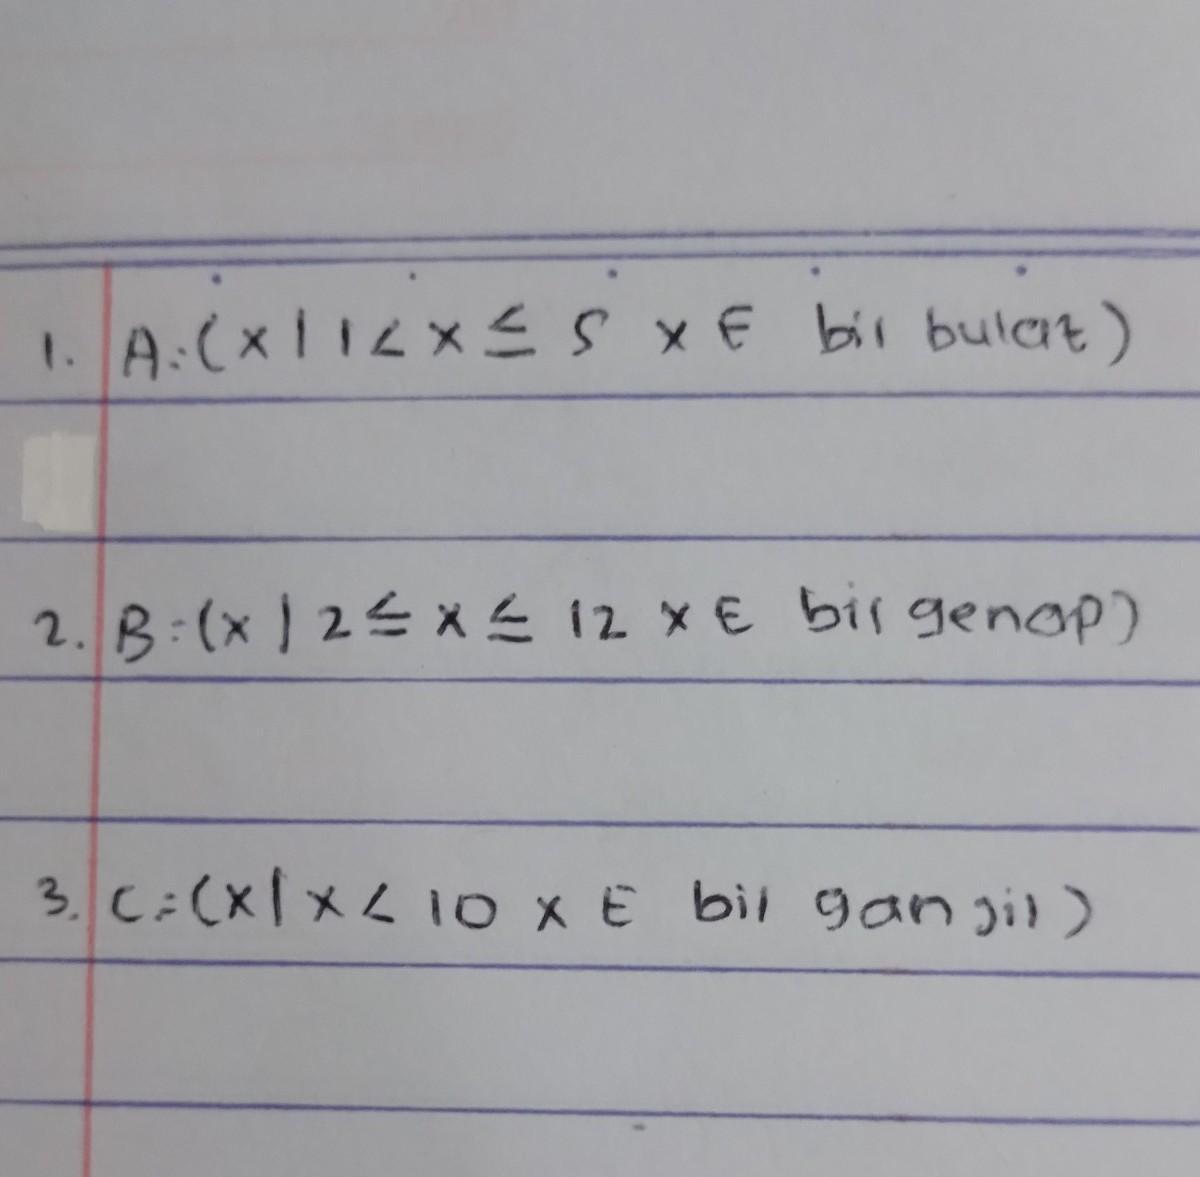 1. A:(x|1<x≤5 x E bil bulat)
2. B:(x|2≤x≤12 x E bil genap)
3. C:(x|x<10 x E bil ganjil)